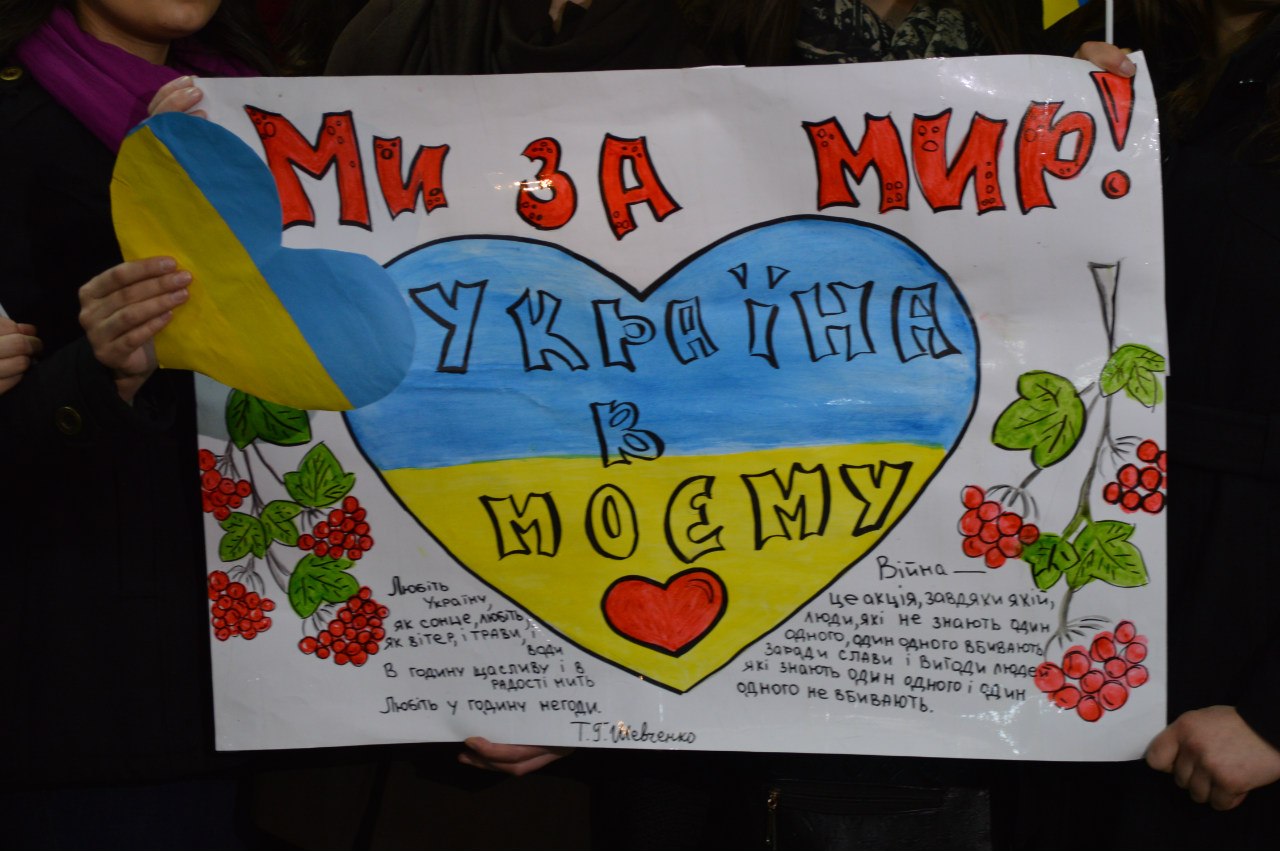 Ми за мир!
УКРАЇНА
В
МОЄМУ
Любіть
Україну,
як сонце, любіть,
як вітер, і трави, і
води
В годину щасливу і в
радості мить
Любіть у годину негоди.
Т.Г.Шевченко
Війна —
це акція, завдяки якій,
люди, які не знають один
одного, один одного вбивають
заради слави і вигоди людей
які знають один одного і один
одного не вбивають.